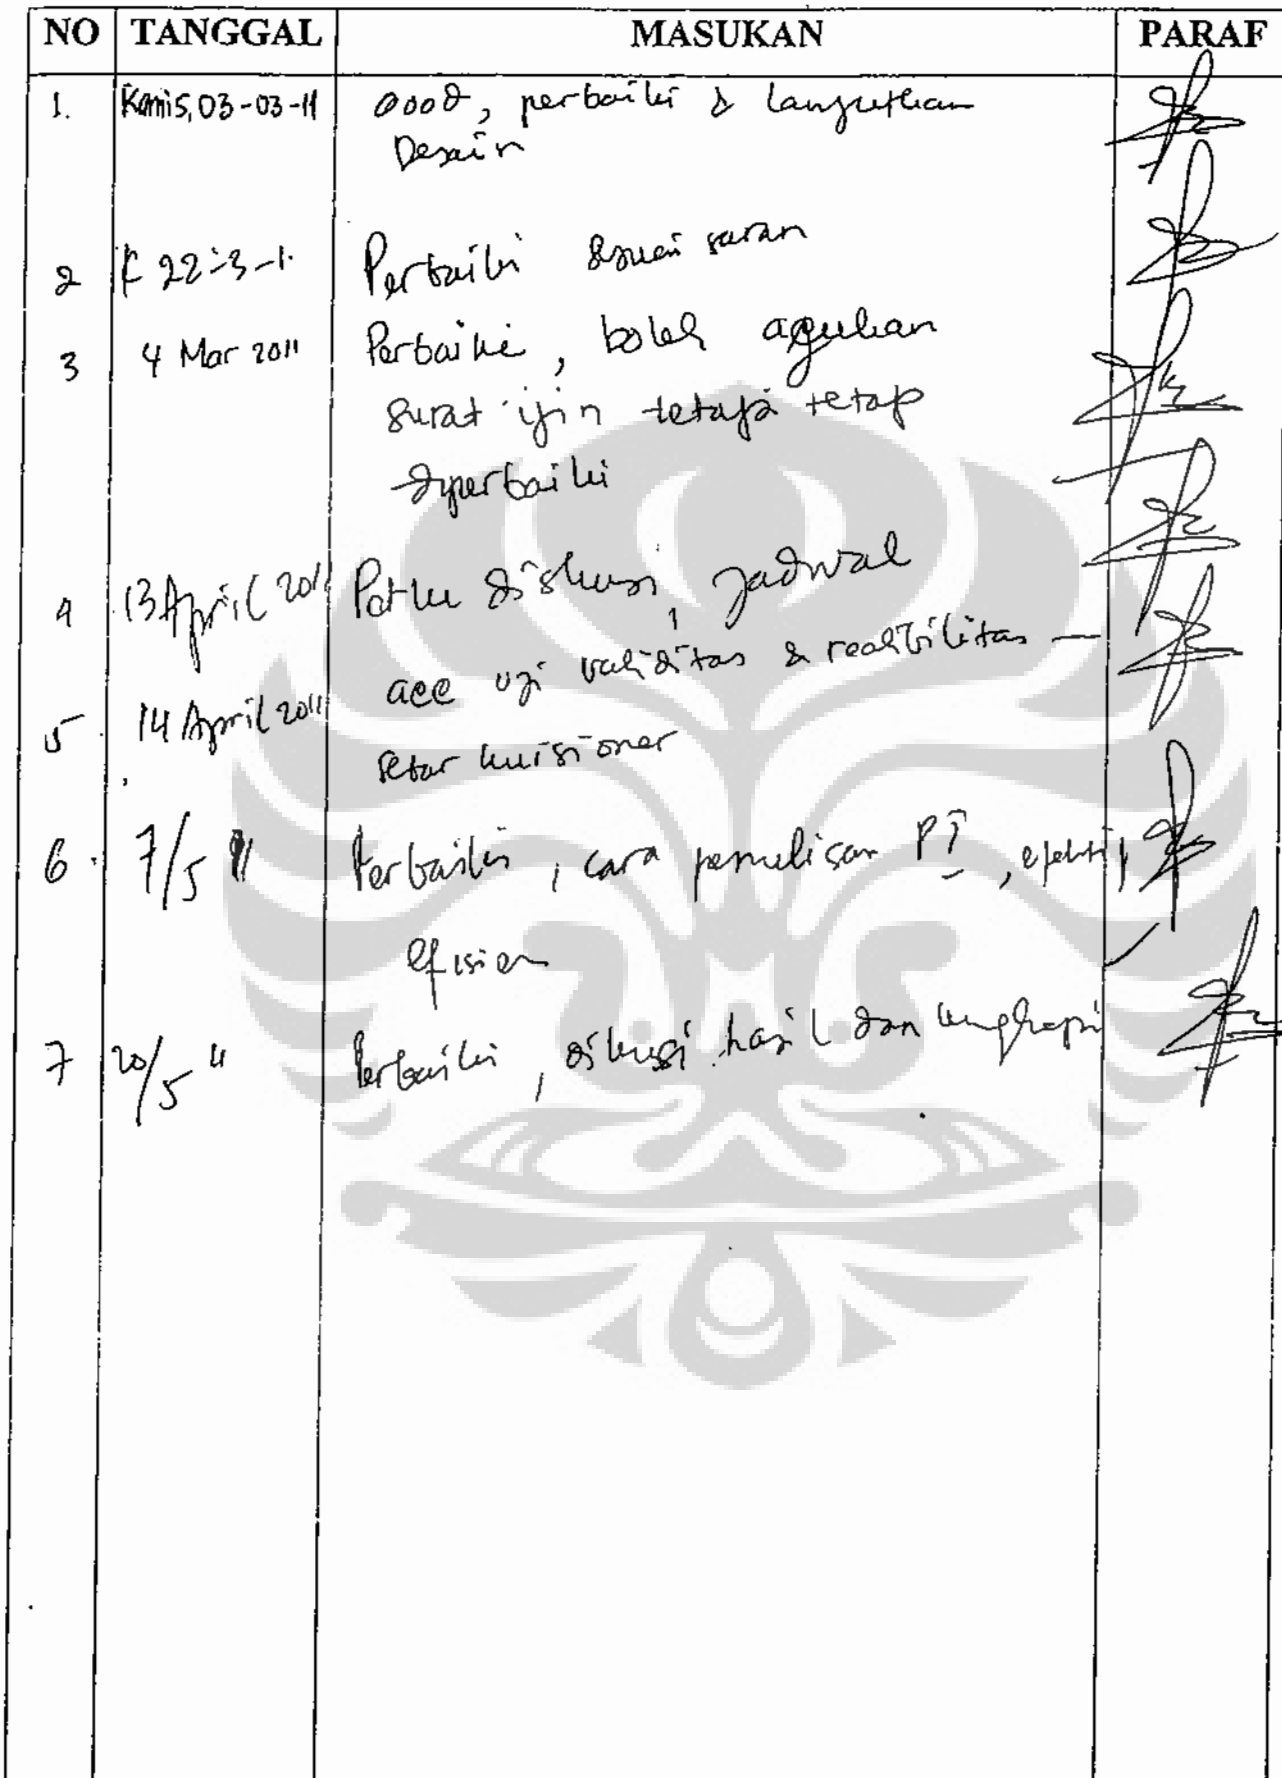 NO TANGGAL MASUKAN PARAF
1. Kamis, 03-03-11 good, perbaiki & lanjutkan
Desain
2 22-3-1 Perbaiki sesuai saran
3 4 Mar 2011 Perbaiki, boleh ajukan
surat ijin tetapi tetap
diperbaiki
4 13 April 2011 diskusi, jadwal
5 14 April 2011 acc uji validitas & realibilitas
sebar kuisioner
6 7/5 11 Perbaiki, cara penulisan , efektif,
efisien
7 20/5 " Perbaiki, diskusi hasil dan lengkapi